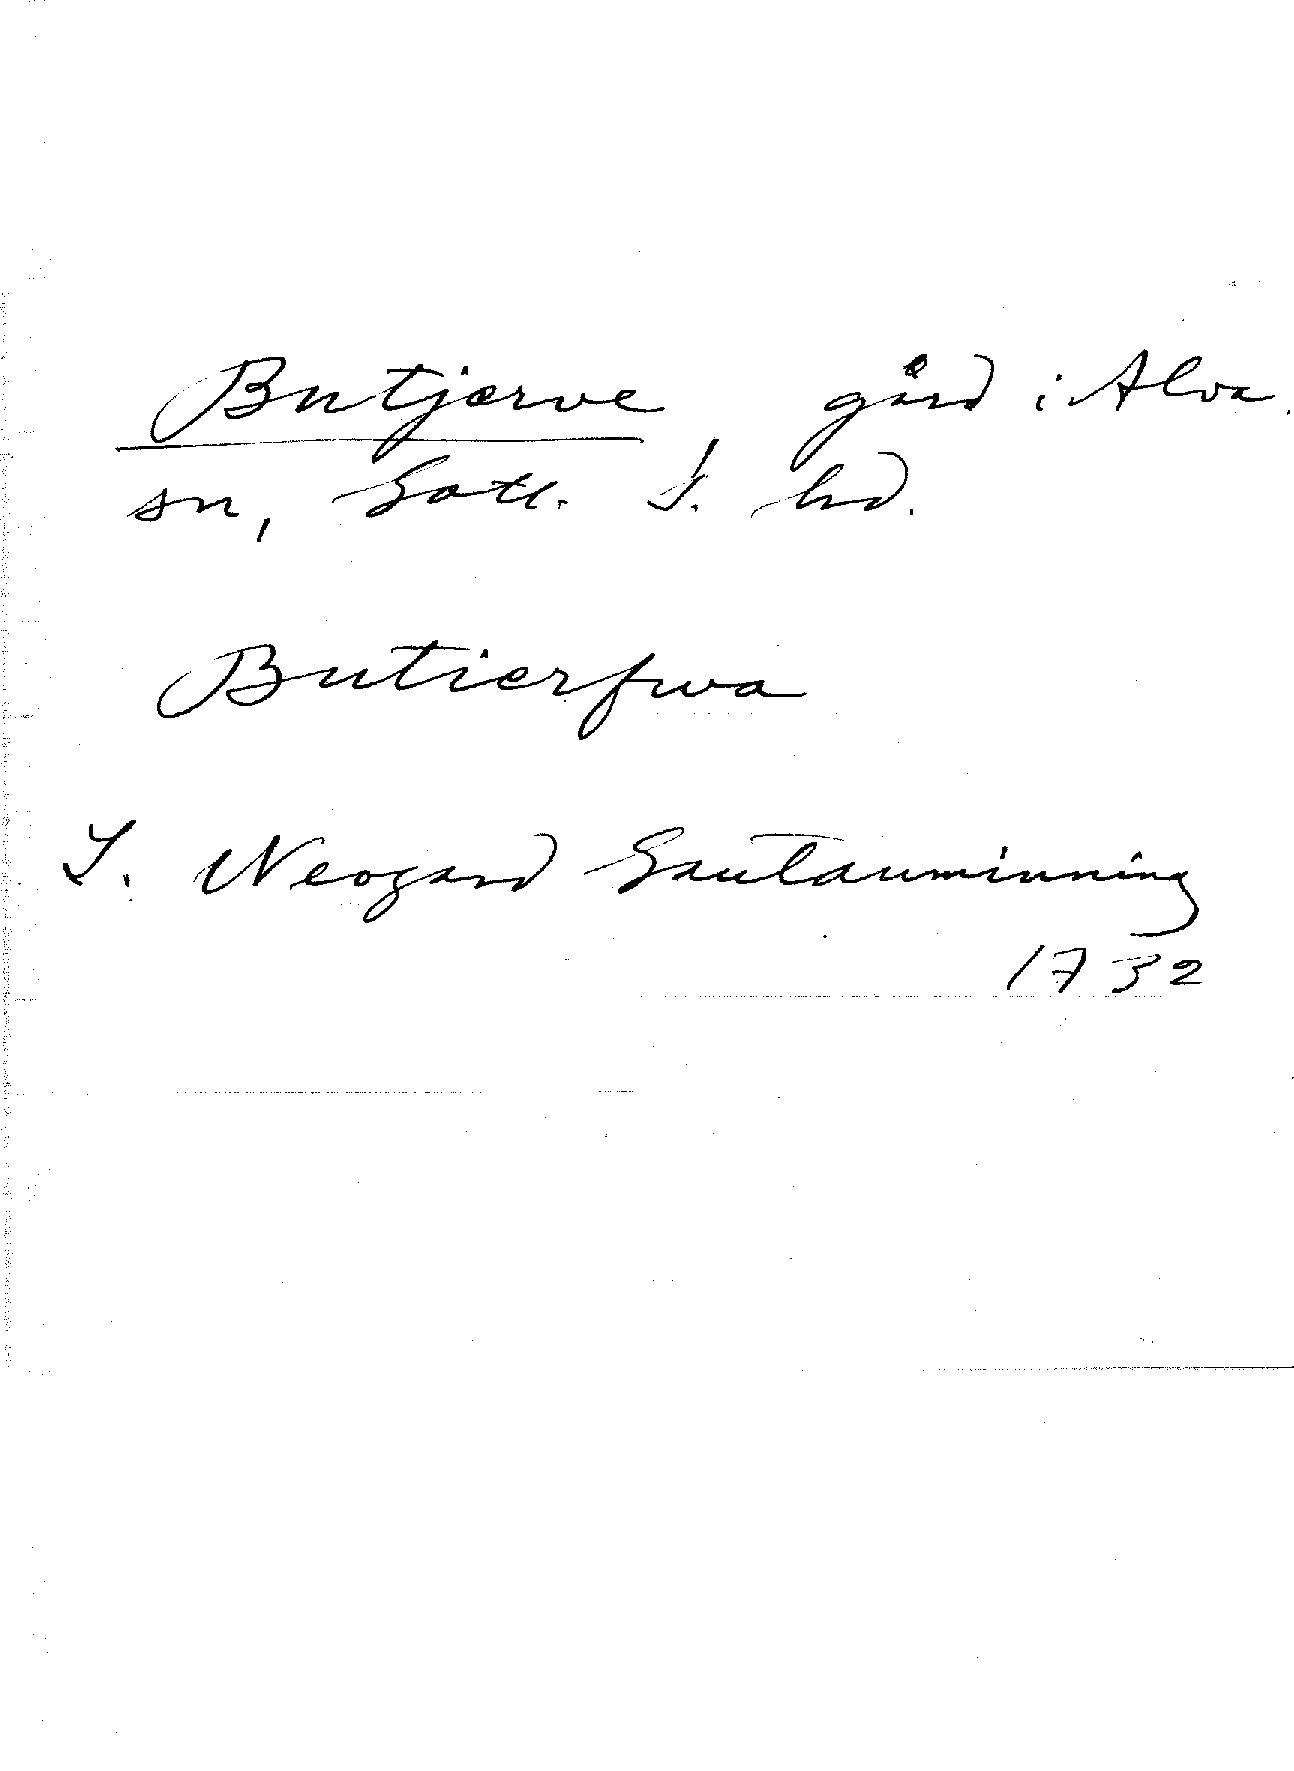 Butjærve, gård i Alva
sn, Gotl. S. hd.
Butierfwa
J. Neogard Gautauminning
1732